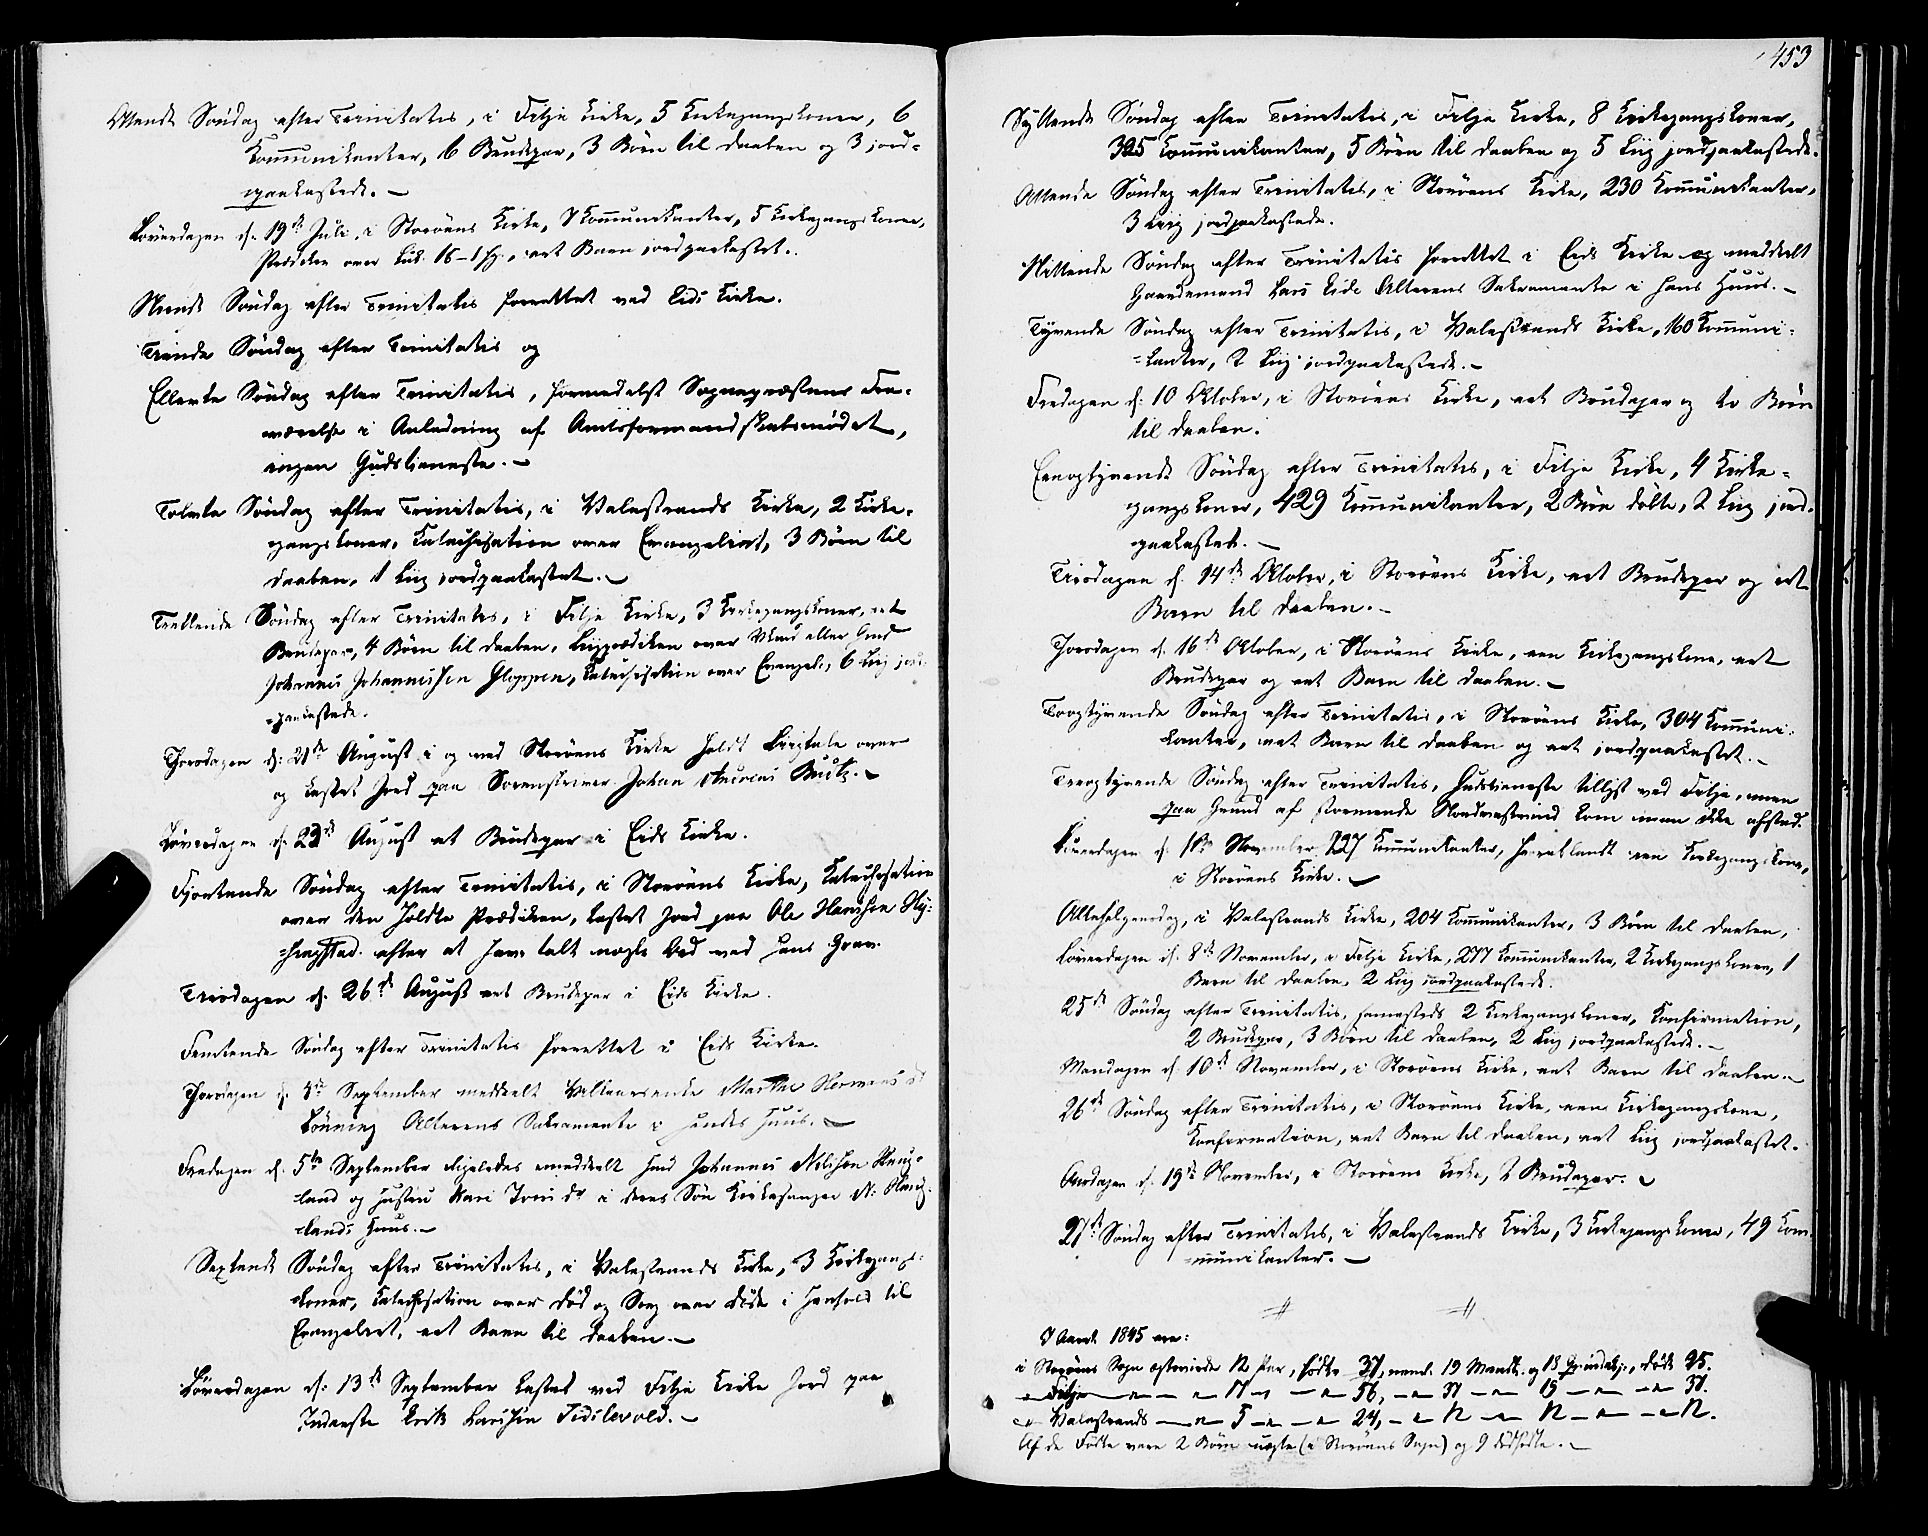 Ottende Søndag efter Trinitatis, i Fitje Kirke, 5 Kirkegangskoner, 6
Kommunikanter, 6 Brudepar, 3 Børn til Daaben og 3 jord-
paakastede. –
Løverdagen d. 19de Juli, i Storøens Kirke, Kommunikanter, 5 Kirkegangskoner,
Prædiken over Luk. 15-1 fg., eet Barn jordpaakastet.
Niende Søndag efter Trinitatis forrettet ved Eids Kirke.
Tiende Søndag efter Trinitatis og
Ellevte Søndag efter Trinitatis, formedelst Sognepræstens Fra-
værelse i Anledning af Amtsformandskabsmødet,
ingen Gudstieneste. –
Tolvte Søndag efter Trinitatis, i Valestrands Kirke, 2 Kirke-
gangskoner, Katechisation over Evangeliet, 3 Børn til
Daaben, 1 Liig jordpaakastet. –
Trettende Søndag efter Trinitatis, i Fitje Kirke, 3 Kirkegangskoner, eet
Brudepar, 4 Børn til Daaben, Liigprædiken over
Johannes Johannessen Gloppen, Katechisation over Evangeli, 6 Liig jord-
paakastede.
Thorsdagen d: 21de August i og ved Storøens Kirke holdt Liigtale over
og kastet Jord paa Sorenskriver Johan
Løverdagen d. 23de August et Brudepar i Eids Kirke.
Fjortende Søndag efter Trinitatis, i Storøens Kirke, Katechisation
over den holdte Prædiken, kastet Jord paa Ole Hansen
efter at have talt nogle Ord ved hans Grav.
Tirsdagen d. 26de August eet Brudepar i Eids Kirke.
Femtende Søndag efter Trinitatis forrettet i Eids Kirke.
Thorsdagen d. 4de September meddeelt Marthe
Alterens Sakramente i hendes Huus. –
Fredagen d. 5te September ligeledes meddeelt Johannes Nilssen Haug-
land og Hustru Kari i deres Søn Kirkesanger N: Haug-
lands Huus. –
Sextende Søndag efter Trinitatis, i Valestrands Kirke, 3 Kirkegangs-
koner, Katechisation over Død og Sorg over Døde i Henhold til
Evangeliet, eet Barn til Daaben. –
Løverdagen d. 13de September kastet ved Fitje Kirke Jord paa
Inderste Erik Larssen
453
Syttende Søndag efter Trinitatis, i Fitje Kirke, 8 Kirkegangskoner,
325 Kommunikanter, 5 Børn til Daaben og 5 Liig jordpaakastede.
Attende Søndag efter Trinitatis, i Storøens Kirke, 230 Kommunikanter,
3 Liig jordpaakastede.
Nittende Søndag efter Trinitatis forrettet i Eids Kirke og meddeelt
Gaardmand Lars Eide Alterens Sakramente i hans Huus. –
Tyvende Søndag efter Trinitatis, i Valestrands Kirke, 160 Kommuni-
kanter, 2 Liig jordpaakastede. –
Fredagen d: 10 Oktober, i Storøens Kirke, eet Brudepar og to Børn
til Daaben.
Eenogtyvende Søndag efter Trinitatis, i Fitje Kirke, 4 Kirke-
gangskoner, 429 Kommunikanter, 2 Børn døbte, 2 Liig jord-
paakastet. –
Tirsdagen d. 14de Oktober, i Storøens Kirke, eet Brudepar og eet
Barn til Daaben. –
Thorsdagen d. 16de Oktober, i Storøens Kirke, een Kirkegangskone, eet
Brudepar og eet Barn til Daaben. –
Toogtyvende Søndag efter Trinitatis, i Storøens Kirke, 304 Kommuni-
kanter, eet Barn til Daaben og eet jordpaakastet. –
Treogtyvende Søndag efter Trinitatis, Gudstieneste tillyst ved Fitje, men
paa Grund af stormende Nordvestvind kom man ikke afsted.
Løverdagen d. 1ste November 227 Kommunikanter, heriblandt een Kirkegangskone,
i Storøens Kirke. –
Allehelgensdag, i Valestrands Kirke, 204 Kommunikanter, 3 Børn til Daaben,
Løverdagen d. 8de November, i Fitje Kirke, 277 Kommunikanter, 2 Kirkegangskoner, 1
Barn til Daaben, 2 Liig jordpaakastede.
25de Søndag efter Trinitatis, sammesteds 2 Kirkegangskoner, Konfirmation,
2 Brudepar, 3 Børn til Daaben, 2 Liig jordpaakastede. –
Mandagen d. 10de November, i Storøens Kirke, eet Barn til Daaben. –
26de Søndag efter Trinitatis, i Storøens Kirke, een Kirkegangskone,
Konfirmation, eet Barn til Daaben, eet Liig jordpaakastet.
Onsdagen d. 19de November, i Storøens Kirke, 2 Brudepar. –
27de Søndag efter Trinitatis, i Valestrands Kirke, 3 Kirkegangskoner, 49 Kom-
munikanter. –
I Aaret 1845 ere:
i Storøens Sogn ægteviede 12 Par, fødte 37, nemlig 19 Mandk. og 18 Qvindekj., døde 25.
- Fitje — 17 — 56, — 37 — 19 — 37.
- Valestrands — 5 — 24, — 12 — 12 — 12.
Af de Fødte vare 2 Børn uægte (i Storøens Sogn) og 9 dødfødte. –